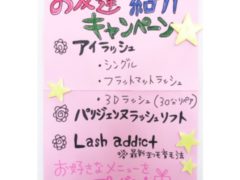 お友達 紹介
キャンペーン
アイラッシュ
・シングル
・フラットマットラッシュ
・3Dラッシュ
パリジェンヌラッシュリフト
Lash addict
お好きなメニューを